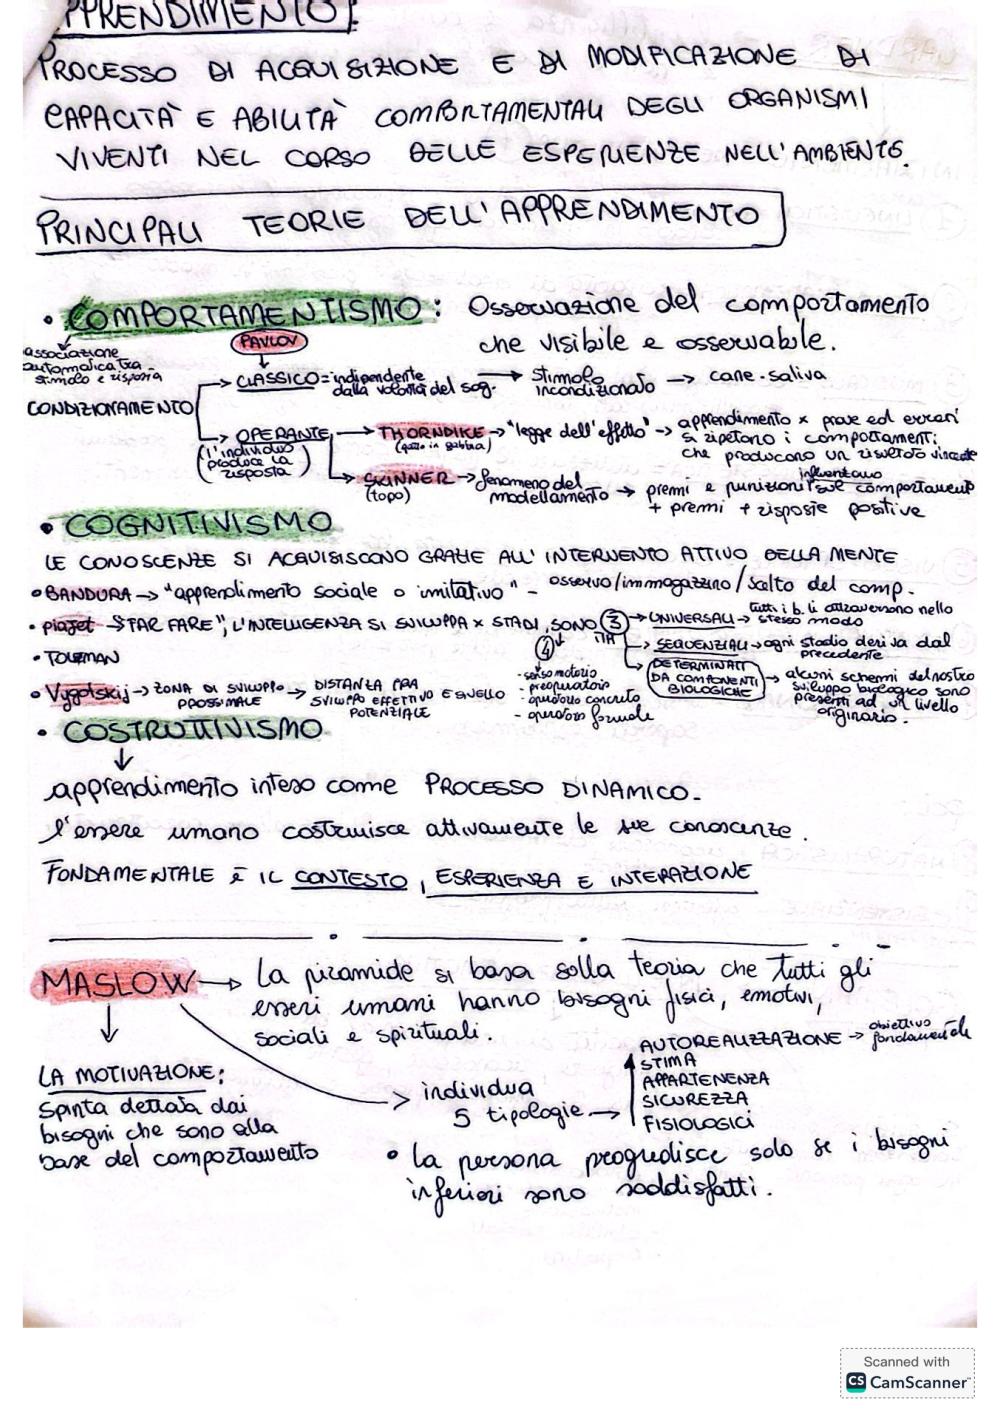 APPRENDIMENTO:
PROCESSO DI ACQUISIZIONE E DI MODIFICAZIONE DI
CAPACITÀ E ABILITÀ COMPORTAMENTALI DEGLI ORGANISMI
VIVENTI NEL CORSO DELLE ESPERIENZE NELL'AMBIENTE.
PRINCIPALI TEORIE DELL'APPRENDIMENTO
• COMPORTAMENTISMO: Osservazione del comportamento
che visibile e osservabile.
associazione
automatica tra
stimolo e risposta
PAVLOV
CONDIZIONAMENTO
→ CLASSICO = indipendente
dalla volontà del sog. → stimolo
incondizionato → cane-saliva
→ OPERANTE
(l'individuo
produce la
risposta)
→ THORNDIKE → "legge dell'effetto" → apprendimento x prove ed errori
(gatto in gabbia)
si ripetono i comportamenti
che producono un risultato vincente
→ SKINNER → fenomeno del
(topo) modellamento → premi e punizioni influenzano sul comportamento
+ premi + risposte positive
• COGNITIVISMO
LE CONOSCENZE SI ACQUISISCONO GRAZIE ALL'INTERVENTO ATTIVO DELLA MENTE
• BANDURA → "apprendimento sociale o imitativo" - osservo/immagazzino/scelto del comp.
• piaget → "FAR FARE", L'INTELLIGENZA SI SVILUPPA x STADI, SONO 3 → UNIVERSALI → tutti i b. li attraversano nello
stesso modo
4
→ SEQUENZIALI → ogni stadio deriva dal
precedente
• TOLMAN
→ DETERMINATI
DA COMPONENTI
BIOLOGICHE → alcuni schemi del nostro
sviluppo biologico sono
presenti ad un livello
originario.
- senso motorio
- preoperatorio
- operatorio concreto
- operatorio formale
• Vygotskij → ZONA DI SVILUPPO
PROSSIMALE → DISTANZA FRA
SVILUPPO EFFETTIVO E QUELLO
POTENZIALE
• COSTRUTTIVISMO
↓
apprendimento inteso come PROCESSO DINAMICO.
l'essere umano costruisce attivamente le sue conoscenze.
FONDAMENTALE È IL CONTESTO, ESPERIENZA E INTERAZIONE
MASLOW → La piramide si basa sulla teoria che tutti gli
esseri umani hanno bisogni fisici, emotivi,
sociali e spirituali.
↓
LA MOTIVAZIONE:
spinta dettata dai
bisogni che sono alla
base del comportamento
→ individua
5 tipologie →
AUTOREALIZZAZIONE → obiettivo
fondamentale
STIMA
APPARTENENZA
SICUREZZA
FISIOLOGICI
• la persona progredisce solo se i bisogni
inferiori sono soddisfatti.
Scanned with
CS CamScanner